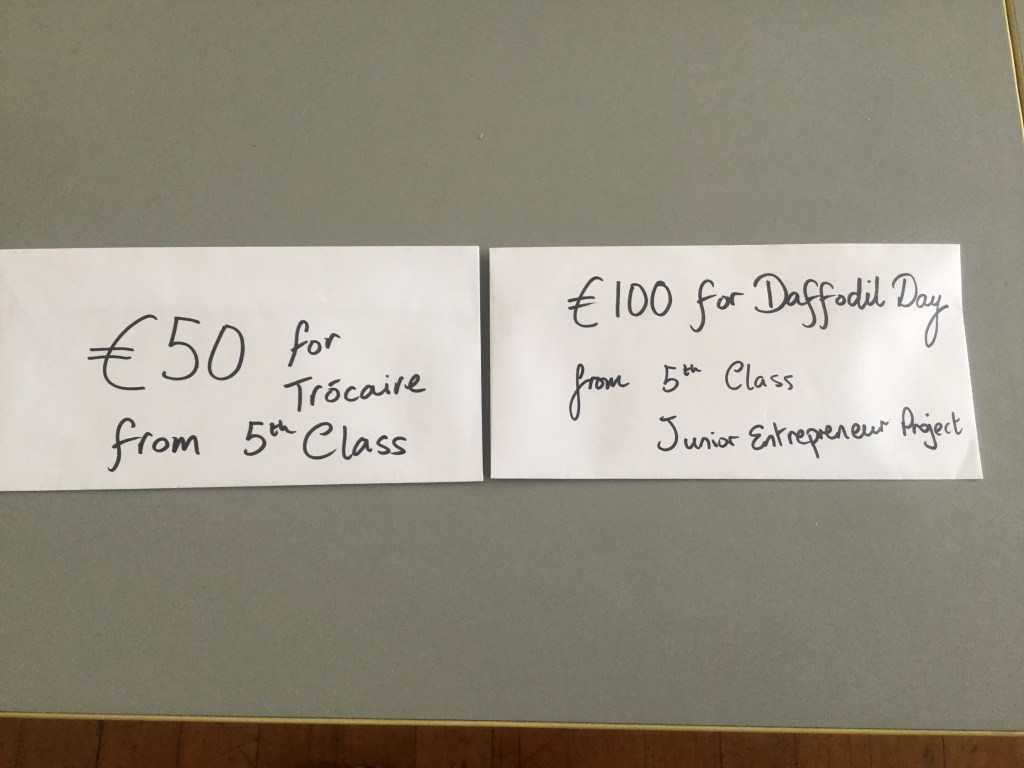 €50 for
Trócaire
from 5th Class
€100 for Daffodil Day
from 5th Class
Junior Entrepreneur Project